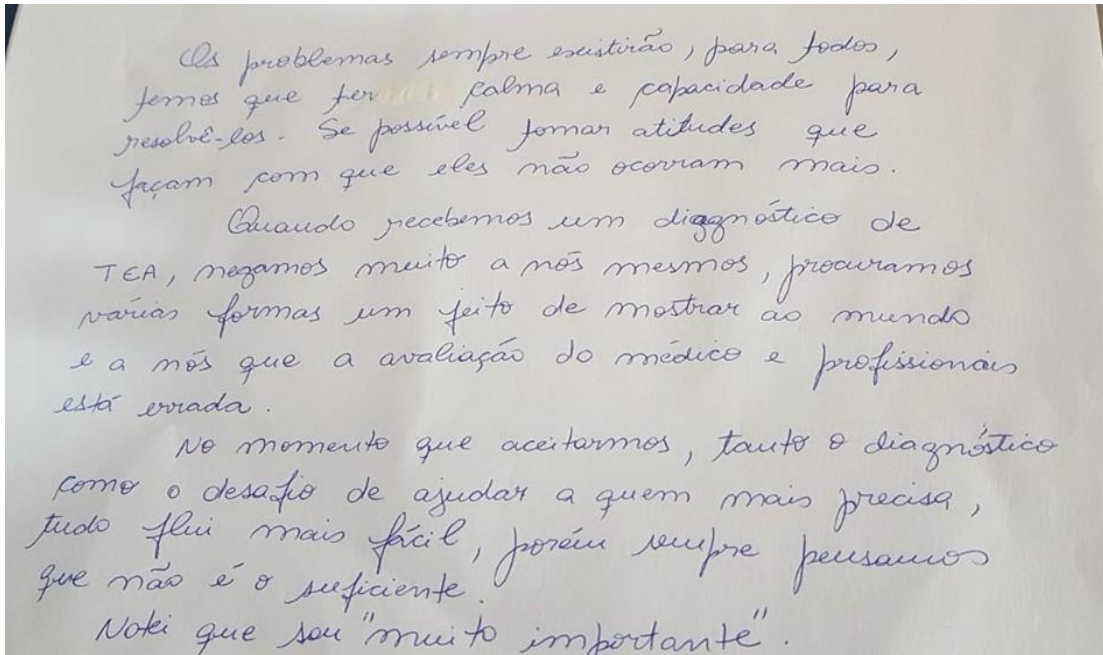 Os problemas sempre existirão, para todos,
temos que ter calma e capacidade para
resolvê-los. Se possível tomar atitudes que
façam com que eles não ocorram mais.
Quando recebemos um diagnóstico de
TEA, negamos muito a nós mesmos, procuramos
várias formas um jeito de mostrar ao mundo
e a nós que a avaliação do médico e profissionais
está errada.
No momento que aceitarmos, tanto o diagnóstico
como o desafio de ajudar a quem mais precisa,
tudo flui mais fácil, porém sempre pensamos
que não é o suficiente.
Notei que sou "muito importante".